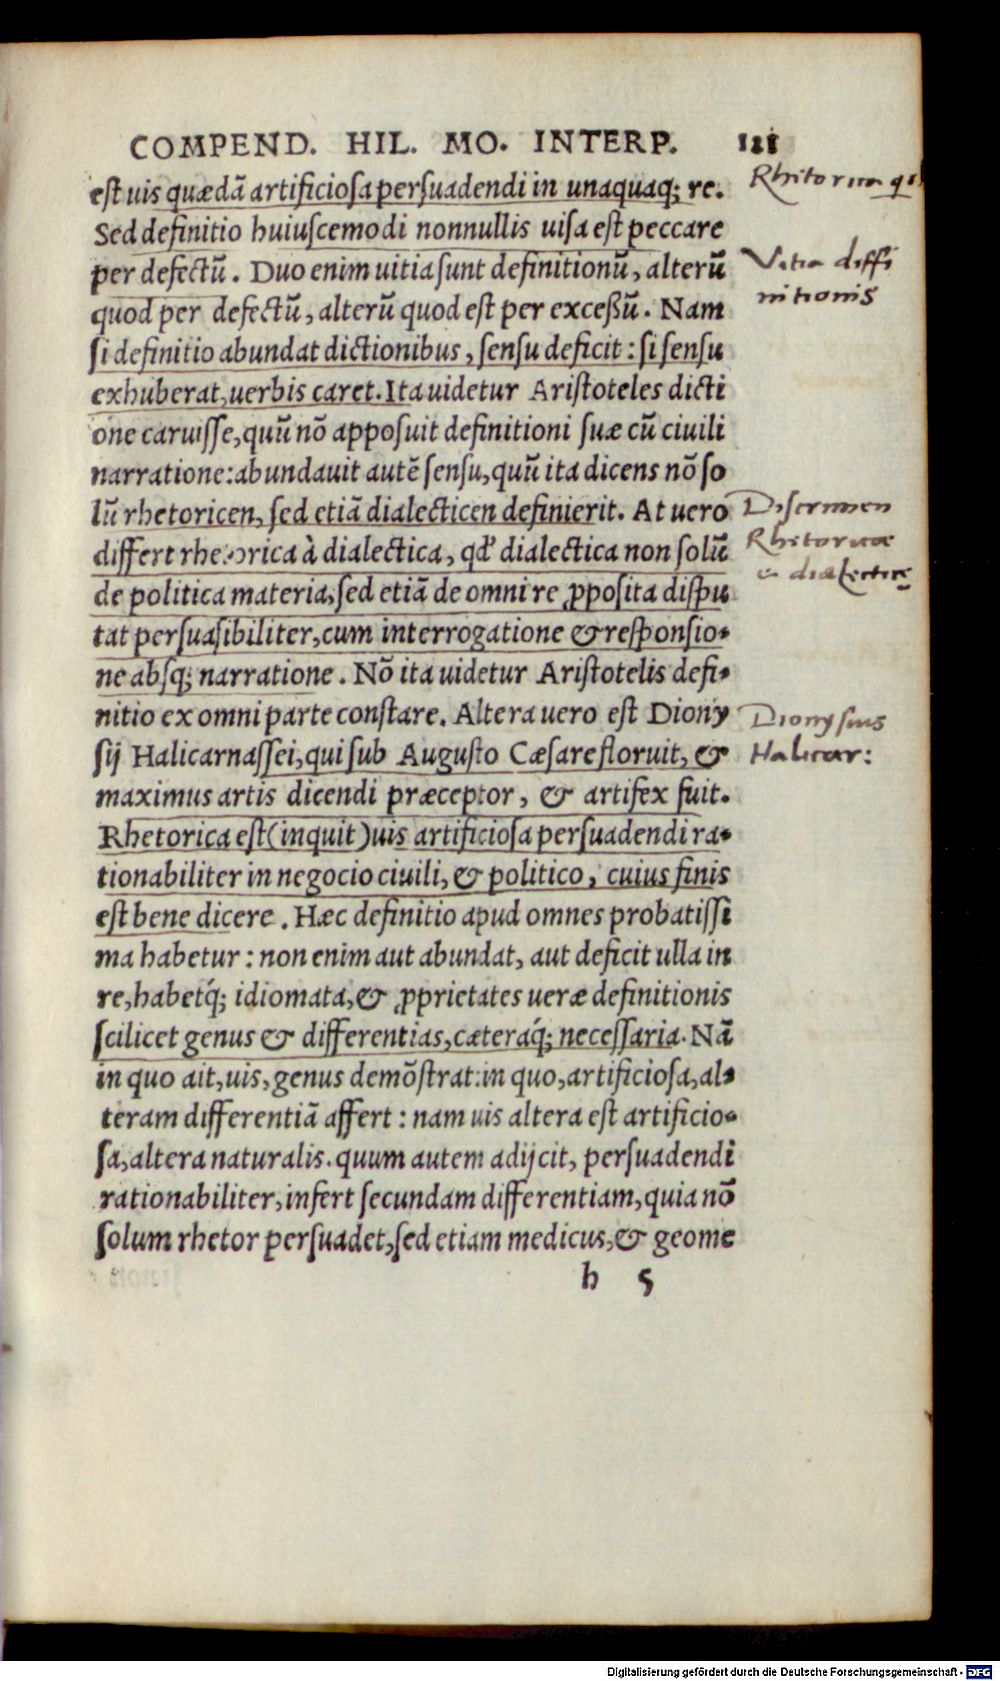 COMPEND. HIL. MO. INTERP. 121
est uis quædã artificiosa persuadendi in unaquaq; re.
Sed definitio huiuscemodi nonnullis uisa est peccare
per defectũ. Duo enim uitia sunt definitionũ, alterũ
quod per defectũ, alterũ quod est per exceßũ. Nam
si definitio abundat dictionibus, sensu deficit: si sensu
exhuberat, uerbis caret. Ita uidetur Aristoteles dicti
one caruisse, quũ nõ apposuit definitioni suæ cũ ciuili
narratione: abundauit autẽ sensu, quũ ita dicens nõ so
lũ rhetoricen, sed etiã dialecticen definierit. At uero
differt rhetorica à dialectica, qd' dialectica non solũ
de politica materia, sed etiã de omni re ꝓposita dispu
tat persuasibiliter, cum interrogatione & responsio-
ne absq; narratione. Nõ ita uidetur Aristotelis defi-
nitio ex omni parte constare. Altera uero est Diony
sij Halicarnassei, qui sub Augusto Cæsare floruit, &
maximus artis dicendi præceptor, & artifex fuit.
Rhetorica est (inquit) uis artificiosa persuadendi ra-
tionabiliter in negocio ciuili, & politico, cuius finis
est bene dicere. Hæc definitio apud omnes probatissi
ma habetur: non enim aut abundat, aut deficit ulla in
re, habetq́; idiomata, & ꝓprietates ueræ definitionis
scilicet genus & differentias, cæteraq́; necessaria. Nã
in quo ait, uis, genus demõstrat: in quo, artificiosa, al-
teram differentiã affert: nam uis altera est artificio-
sa, altera naturalis. quum autem adijcit, persuadendi
rationabiliter, infert secundam differentiam, quia nõ
solum rhetor persuadet, sed etiam medicus, & geome
h 5
Rhitorica
Vitia diffi
nitionis
Discrimen
Rhitoricae
e dialectice
Dionysius
Halicar:
Digitalisierung gefördert durch die Deutsche Forschungsgemeinschaft - DFG